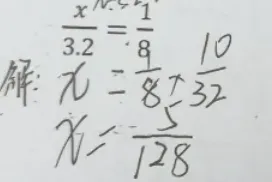 x/3.2 = 1/8
解: x = 1/8 × 10/32
x = 5/128